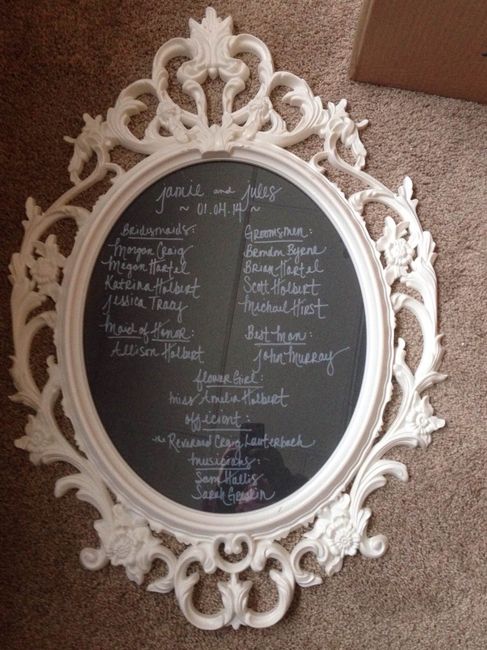 jamie and jules
~ 01.04.14 ~
Bridesmaids:
Morgan Craig
Megan Hartel
Katrina Holbert
Jessica Tracy
Maid of Honor:
Allison Holbert
Groomsmen:
Brendon Byrne
Brian Hartel
Scott Holbert
Michael Hirst
Best Man:
John Murray
flower Girl:
miss Amelia Holbert
officient:
the Reverend Craig Lauterbach
musicians:
Sam Hollis
Sarah